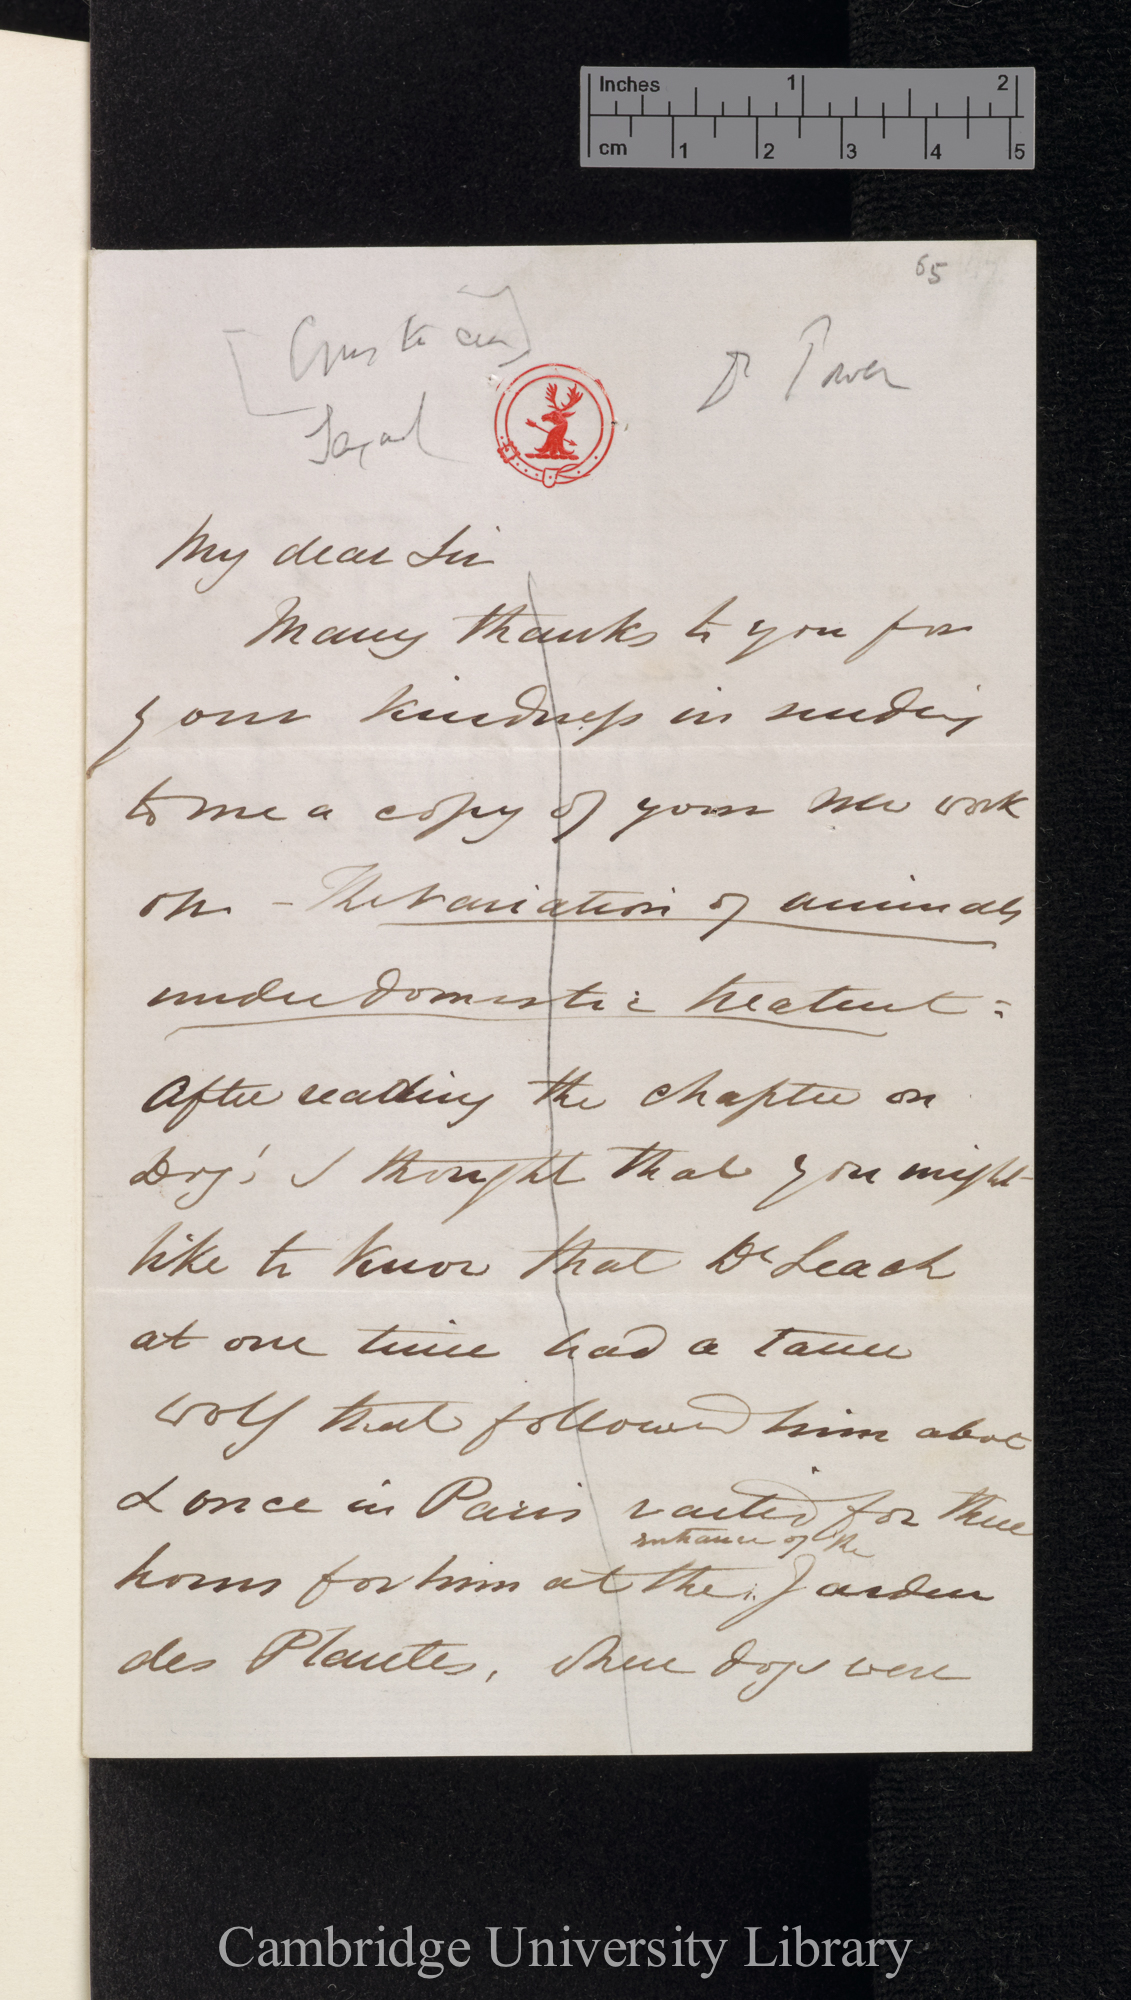 Inches 1 2
cm 1 2 3 4 5
65
Dr Power
My dear Sir
Many thanks to you for
your kindness in sending
to me a copy of your new work
on – The Variation of animals
under domestic treatment =
After reading the chapter on
Dogs' I thought that you might
like to know that Dr Leach
at one time had a tame
wolf that followed him about
& once in Paris waited for three
entrance of the
hours for him at the Jarden
des Plantes, where dogs were
Cambridge University Library